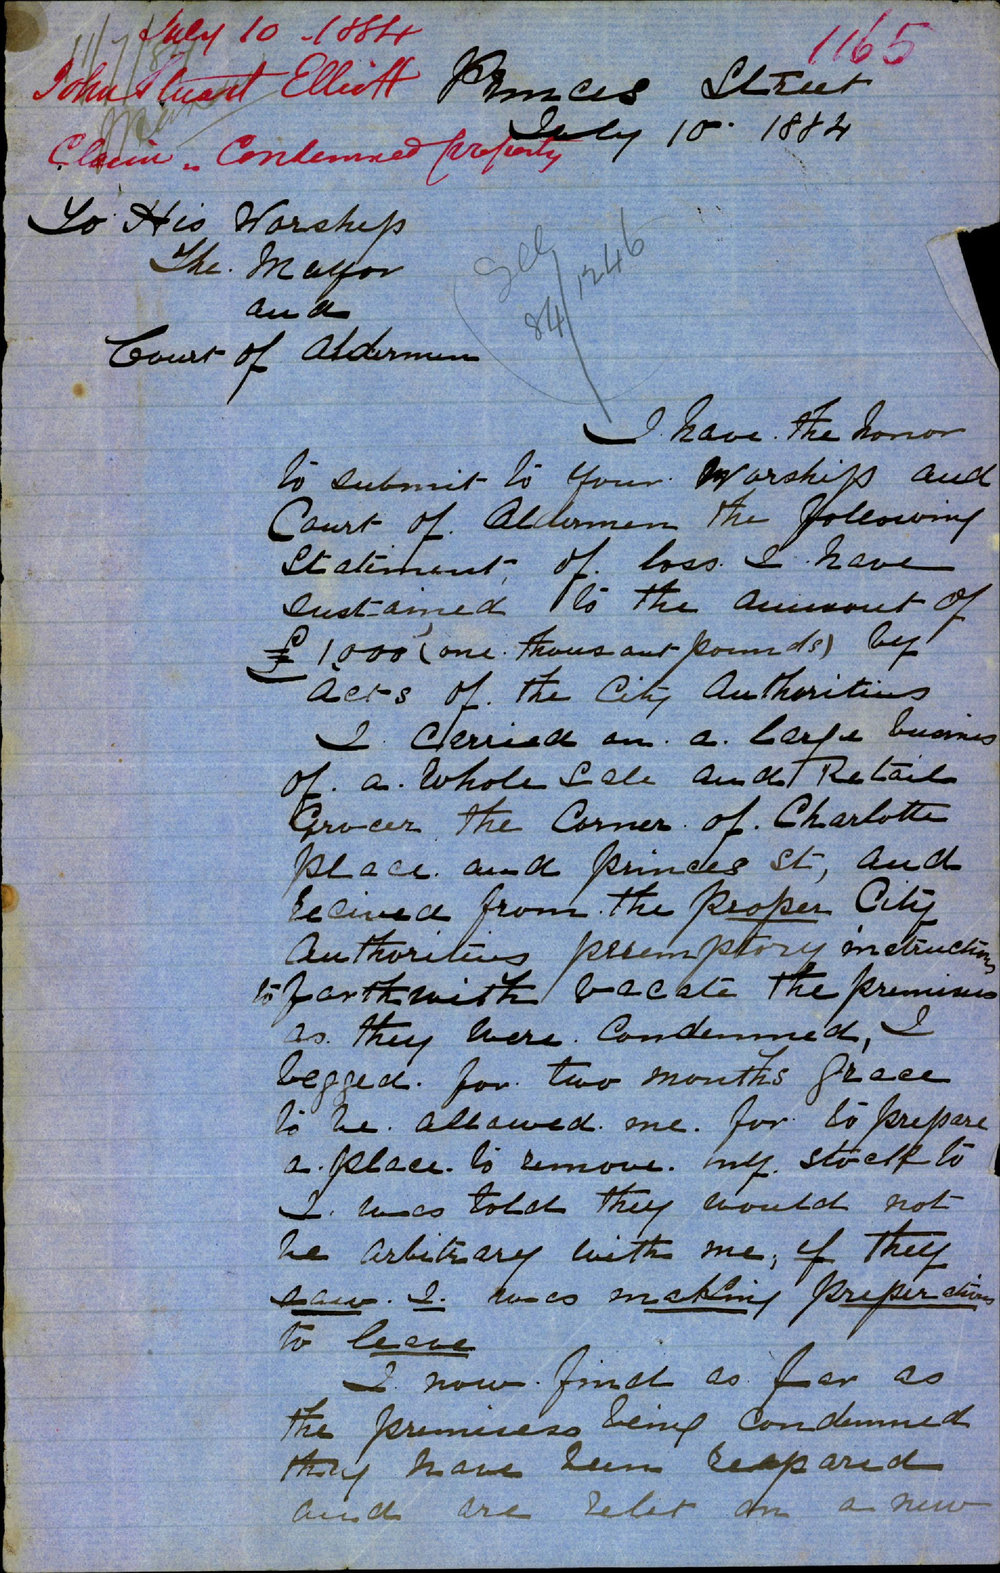 July 10 - 1884
1165
11/7/84
John Stuart Elliott
Claim - Condemned property
Princes Street
July 10. 1884
To His Worship
The. Mayor
and
Court of Aldermen
See
84/1246
I. have. the honor
to submit to your Worship and
Court of. Aldermen the following
Statement of. loss. I have
sustained to the amount of
£ 1000 (one thousant pounds) by
acts of. the City Authorities
I. Carried on. a. large business
of. a. Whole Sale and Retail
Grocer the Corner. of. Charlotte
place. and princes St, and
recived from. the proper City
Authorities premptory instructions
to forthwith vacate the premises
as. they were. Condemned, I
begged. for. two months grace
to be. allowed. me. for. to prepare
a. place. to remove. my. stock to
I. was told they would not
be arbitrary with me, if they
saw. I. was making preperations
to leave
I. now. find as. far as
the premisess being condemned
they have been reapared
and are relet on a new